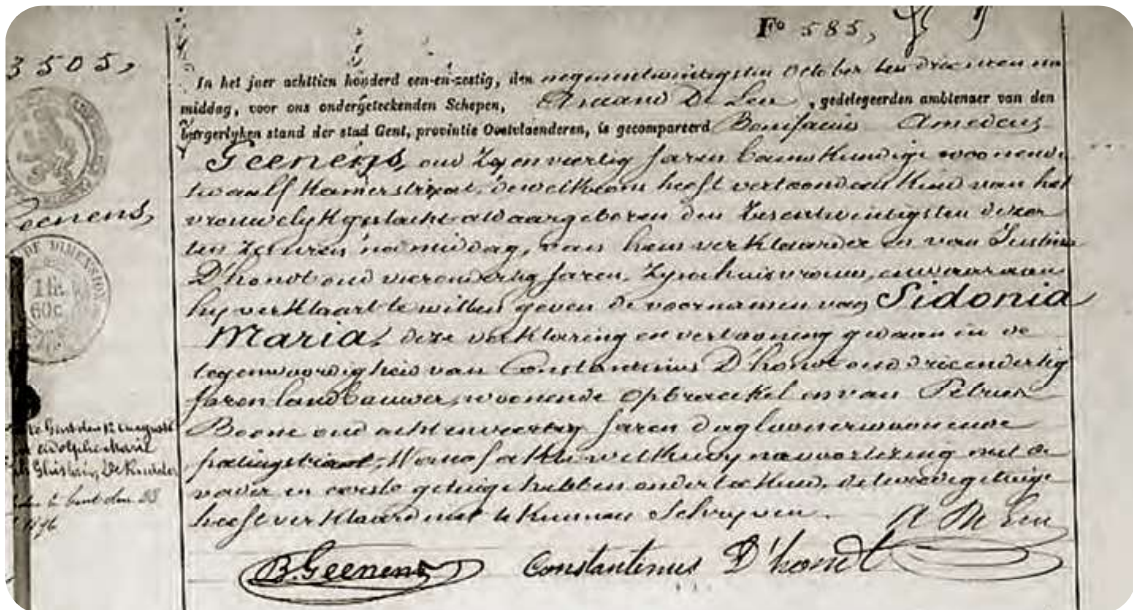 Fo 585,
3505,
In het jaer achttien honderd een-en-zestig, den negenentwintigsten October ten drie uren na
middag, voor ons ondergeteekenden Schepen, De Leu, gedelegeerden ambtenaer van den
burgerlyken stand der stad Gent, provintie Oostvlaenderen, is gecompareerd Bonifacius Amedeus
Geenens, oud zevenveertig jaren woonende
Kamerstraat, dewelke ons heeft vertoond een Kind van het
vrouwelyk geslacht aldaar geboren den zesentwintigsten dezer
ten zes uren namiddag, van hem verklaarder en van Justina
D'hondt oud vierendertig jaren, zyne huisvrouw, en waaraan
hy verklaart te willen geven de voornamen van Sidonia
Maria, deze verklaring en vertooning gedaan in de
tegenwoordigheid van Constantinus D'hondt oud drieendertig
jaren landbouwer, woonende Opbrakel en van Petrus
Boone oud achtenveertig jaren daglooner woonende
palingstraat, Waarof akte welke wy na voorlezing met de
vader en eerste getuige hebben onderteekend, de tweede getuige
heeft verklaard niet te kunnen Schryven.
B. Geenens Constantinus D'hondt
Geenens,
DE DIMENSION
1 fr.
60c
De Keukeler
1896